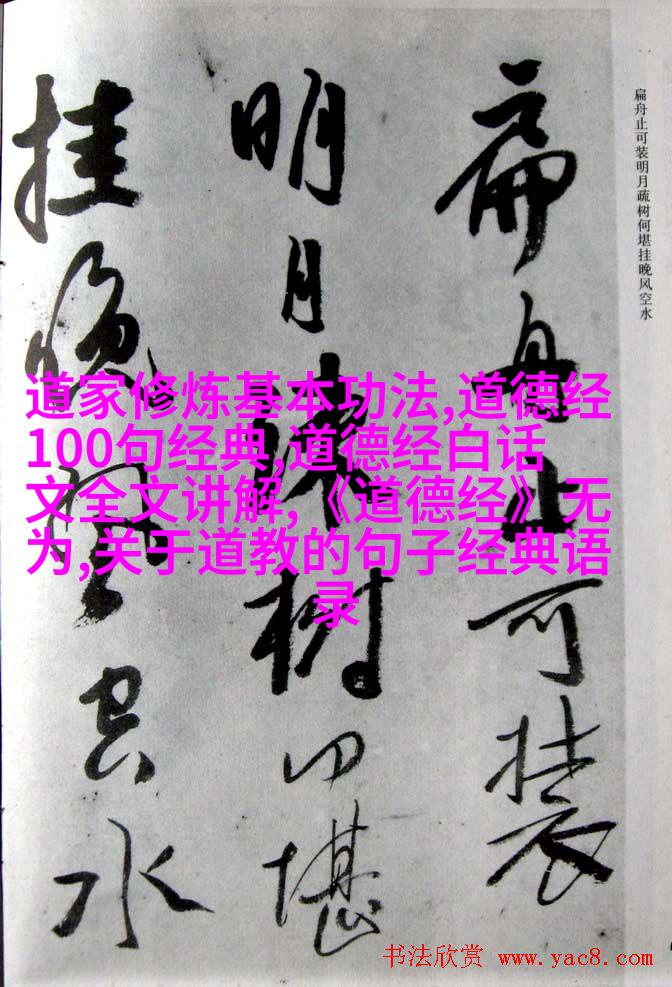 扁舟止可装
明月疏树何堪
挂晚风空水
扁舟止可装明月疏树何堪挂晚风空水
道家修炼基本功法,道德经
100句经典,道德经白话
文全文讲解,《道德经》无
为,关于道教的句子经典语
录
书法欣赏 www.yac8.com